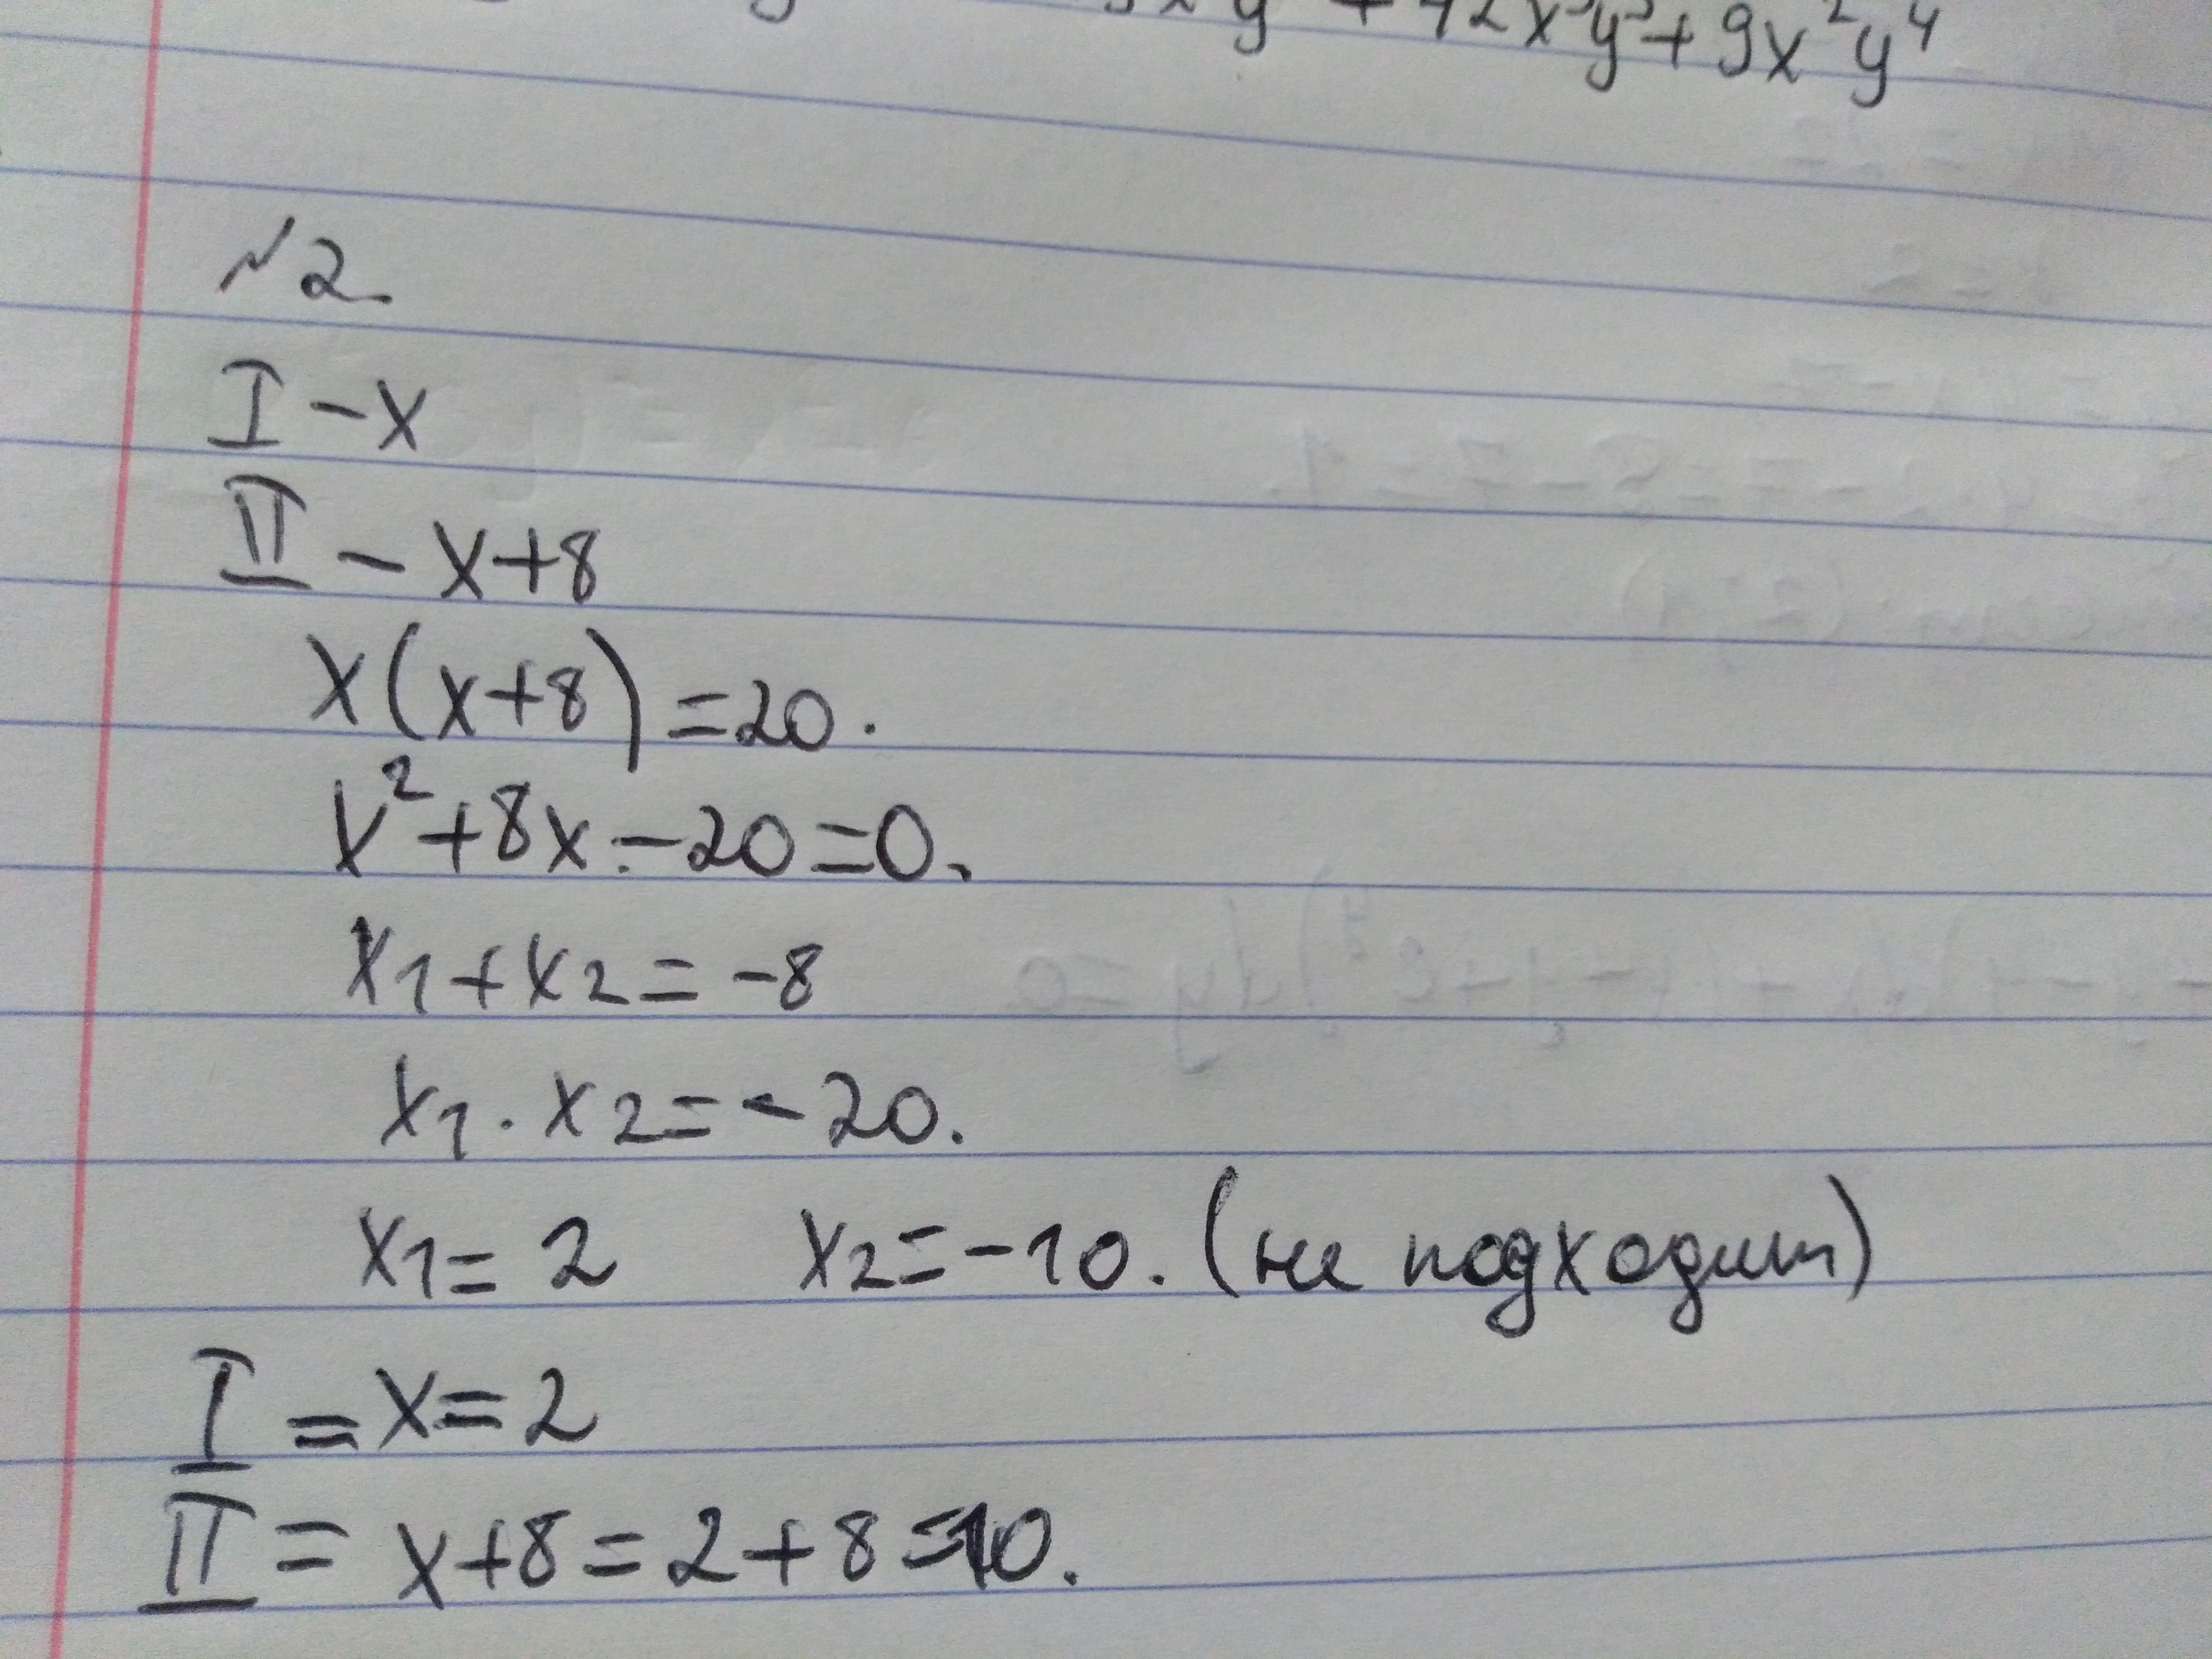 + 42x³y³ + 9x²y⁴
№2.
I – x
II – x+8
x(x+8)=20.
x²+8x-20=0.
x₁+x₂=-8
x₁·x₂=-20.
x₁=2 x₂=-10. (не подходит)
I = x=2
II = x+8=2+8=10.